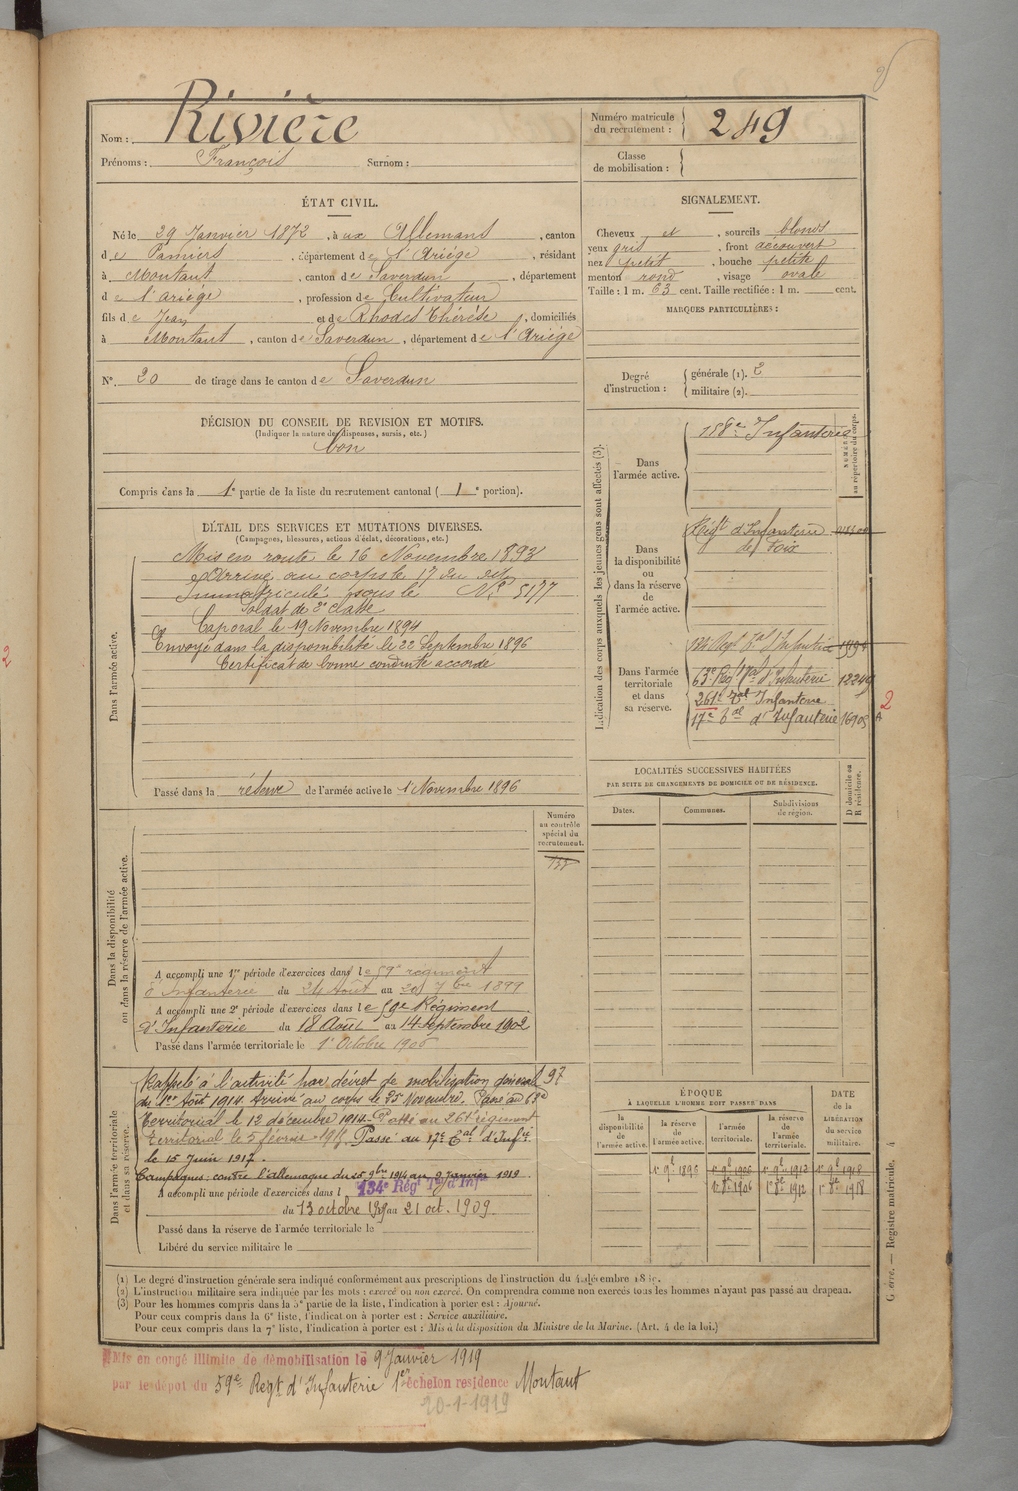 Nom : Rivière
Prénoms : François Surnom :
Numéro matricule du recrutement : 249
Classe de mobilisation :
ÉTAT CIVIL.
Né le 29 Janvier 1872, à ux Allemans, canton
de Pamiers, département de l'Ariége, résidant
à Montaut, canton de Saverdun, département
de l'ariége, profession de Cultivateur
fils de Jean et de Rhodes Thérèse, domiciliés
à Montaut, canton de Saverdun, département de l'Ariége
N° 20 de tirage dans le canton de Saverdun
SIGNALEMENT.
Cheveux et, sourcils blonds
yeux gris, front découvert
nez petit, bouche petite
menton rond, visage ovale
Taille : 1 m. 63 cent. Taille rectifiée : 1 m. cent.
MARQUES PARTICULIÈRES :
Degré d'instruction : générale (1). 2
militaire (2).
DÉCISION DU CONSEIL DE REVISION ET MOTIFS.
(Indiquer la nature des dispenses, sursis, etc.)
bon
Compris dans la 1e partie de la liste du recrutement cantonal (1e portion).
DÉTAIL DES SERVICES ET MUTATIONS DIVERSES.
(Campagnes, blessures, actions d'éclat, décorations, etc.)
Dans l'armée active.
Mis en route le 16 Novembre 1893
Arrivé au corps le 17 du dit
Immatriculé sous le N° 5177
Soldat de 2e classe
Caporal le 19 Novembre 1894
Envoyé dans la disponibilité le 22 Septembre 1896
Certificat de bonne conduite accordé
Passé dans la réserve de l'armée active le 1 Novembre 1896
Indication des corps auxquels les jeunes gens sont affectés (3).
NUMÉROS au répertoire du corps.
Dans l'armée active.
158e Infanterie
Dans la disponibilité ou dans la réserve de l'armée active.
Régt d'Infanterie
de Foix
Dans l'armée territoriale et dans sa réserve.
134 Regt tal d'Infantie
63e Reg Tal d'Infanterie 12249
261e Tal Infanterie
17e tal d'Infanterie 16905
2
LOCALITÉS SUCCESSIVES HABITÉES
PAR SUITE DE CHANGEMENTS DE DOMICILE OU DE RÉSIDENCE.
Dates. Communes. Subdivisions de région. D domicile ou R résidence.
Numéro au contrôle spécial du recrutement.
Dans la disponibilité ou dans la réserve de l'armée active.
A accompli une 1re période d'exercices dans le 59e regiment
d'Infanterie du 24 Août au 20 7bre 1899
A accompli une 2e période d'exercices dans le 59e Régiment
d'Infanterie du 18 Août au 14 septembre 1902
Passé dans l'armée territoriale le 1e Octobre 1906
Dans l'armée territoriale et dans sa réserve.
Rappelé à l'activité par décret de mobilization général 97
du 1er Août 1914. Arrivé au corps le 25 Novembre. Passé au 63e
Territorial le 12 décembre 1914. Passé au 261e régiment
Territorial le 5 février 1915. Passé au 17e Tal d'Infie
le 15 Juin 1917.
Campagnes : contre l'Allemagne du 25 9bre 1914 au 9 Janvier 1919
A accompli une période d'exercices dans l 134e Régt Tal d'Infie
du 13 octobre 1909 au 21 oct. 1909.
Passé dans la réserve de l'armée territoriale le
Libéré du service militaire le
ÉPOQUE
À LAQUELLE L'HOMME DOIT PASSER DANS
la disponibilité de l'armée active. la réserve de l'armée active. l'armée territoriale. la réserve de l'armée territoriale.
DATE de la LIBÉRATION du service militaire.
1e 9e 1896 1e 9e 1906 1e 9e 1912 1e 9e 1918
1e 8e 1906 1e 8e 1912 1e 8e 1918
(1) Le degré d'instruction générale sera indiqué conformément aux prescriptions de l'instruction du 4 décembre
(2) L'instruction militaire sera indiquée par les mots : exercé ou non exercé. On comprendra comme non exercés tous les hommes n'ayant pas passé au drapeau.
(3) Pour les hommes compris dans la 5e partie de la liste, l'indication à porter est : Ajourné.
Pour ceux compris dans la 6e liste, l'indication à porter est : Service auxiliaire.
Pour ceux compris dans la 7e liste, l'indication à porter est : Mis à la disposition du Ministre de la Marine. (Art. 4 de la loi.)
Guerre. — Registre matricule. 4
Mis en congé illimité de démobilisation le 9 Janvier 1919
par le dépôt du 59e Régt d'Infanterie 1er échelon residence Montaut
20-1-1919